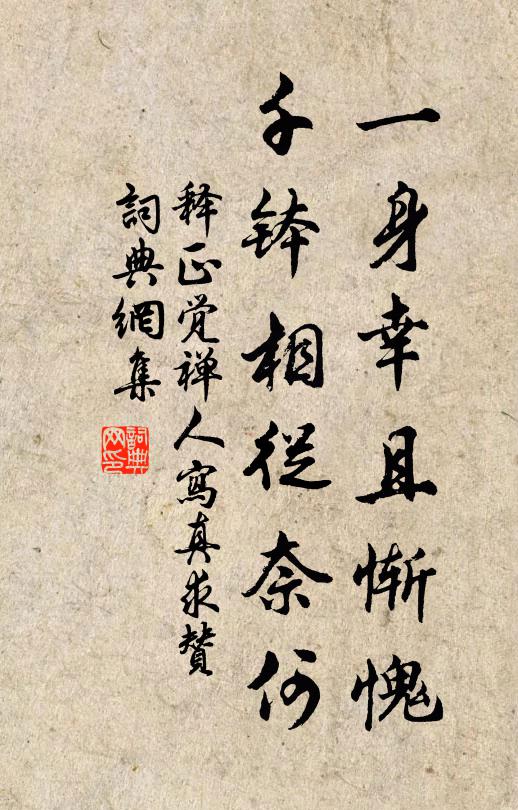 一身幸且惭愧
千钵相從奈何
释正觉禅人寫真求贊
詞典網集
詞典网印